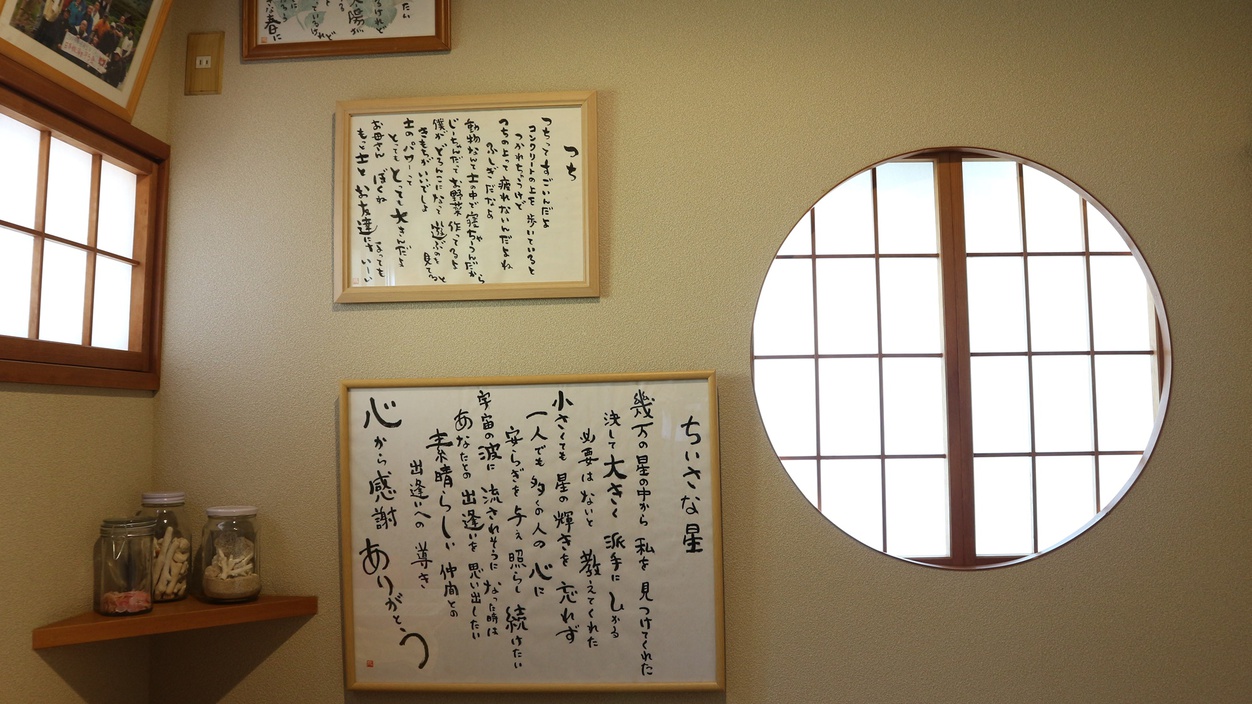 たい
なけれど
太陽が
る
ているけれど
春に
つち
つちってすごいんだよ
コンクリートの上を 歩いていると
つかれちゃうけど
つちの上って 疲れないんだよね
ふしぎだなぁ
動物なんて土の中で寝ちゃうんだから
じーちゃんだって お野菜 作ってるよ
僕が どろんこになって 遊ぶのを 見てると
きもちがいいでしょ
土のパワーって
とっても とっても 大きんだよ
お母さん ぼくが
もっと土と お友達に さいーい
ちいさな星
幾万の星の中から 私を 見つけてくれた
決して 大きく 派手に ひかる
必要はないと 教えてくれた
小さくても 星の 輝きを 忘れず
一人でも 多くの人の 心に
安らぎを 与え 照らし 続けたい
宇宙の波に 流されそうに なった時は
あなたとの 出逢いを 思い出したい
素晴らしい 仲間との
出逢いへの 導き
心から感謝 ありがとう